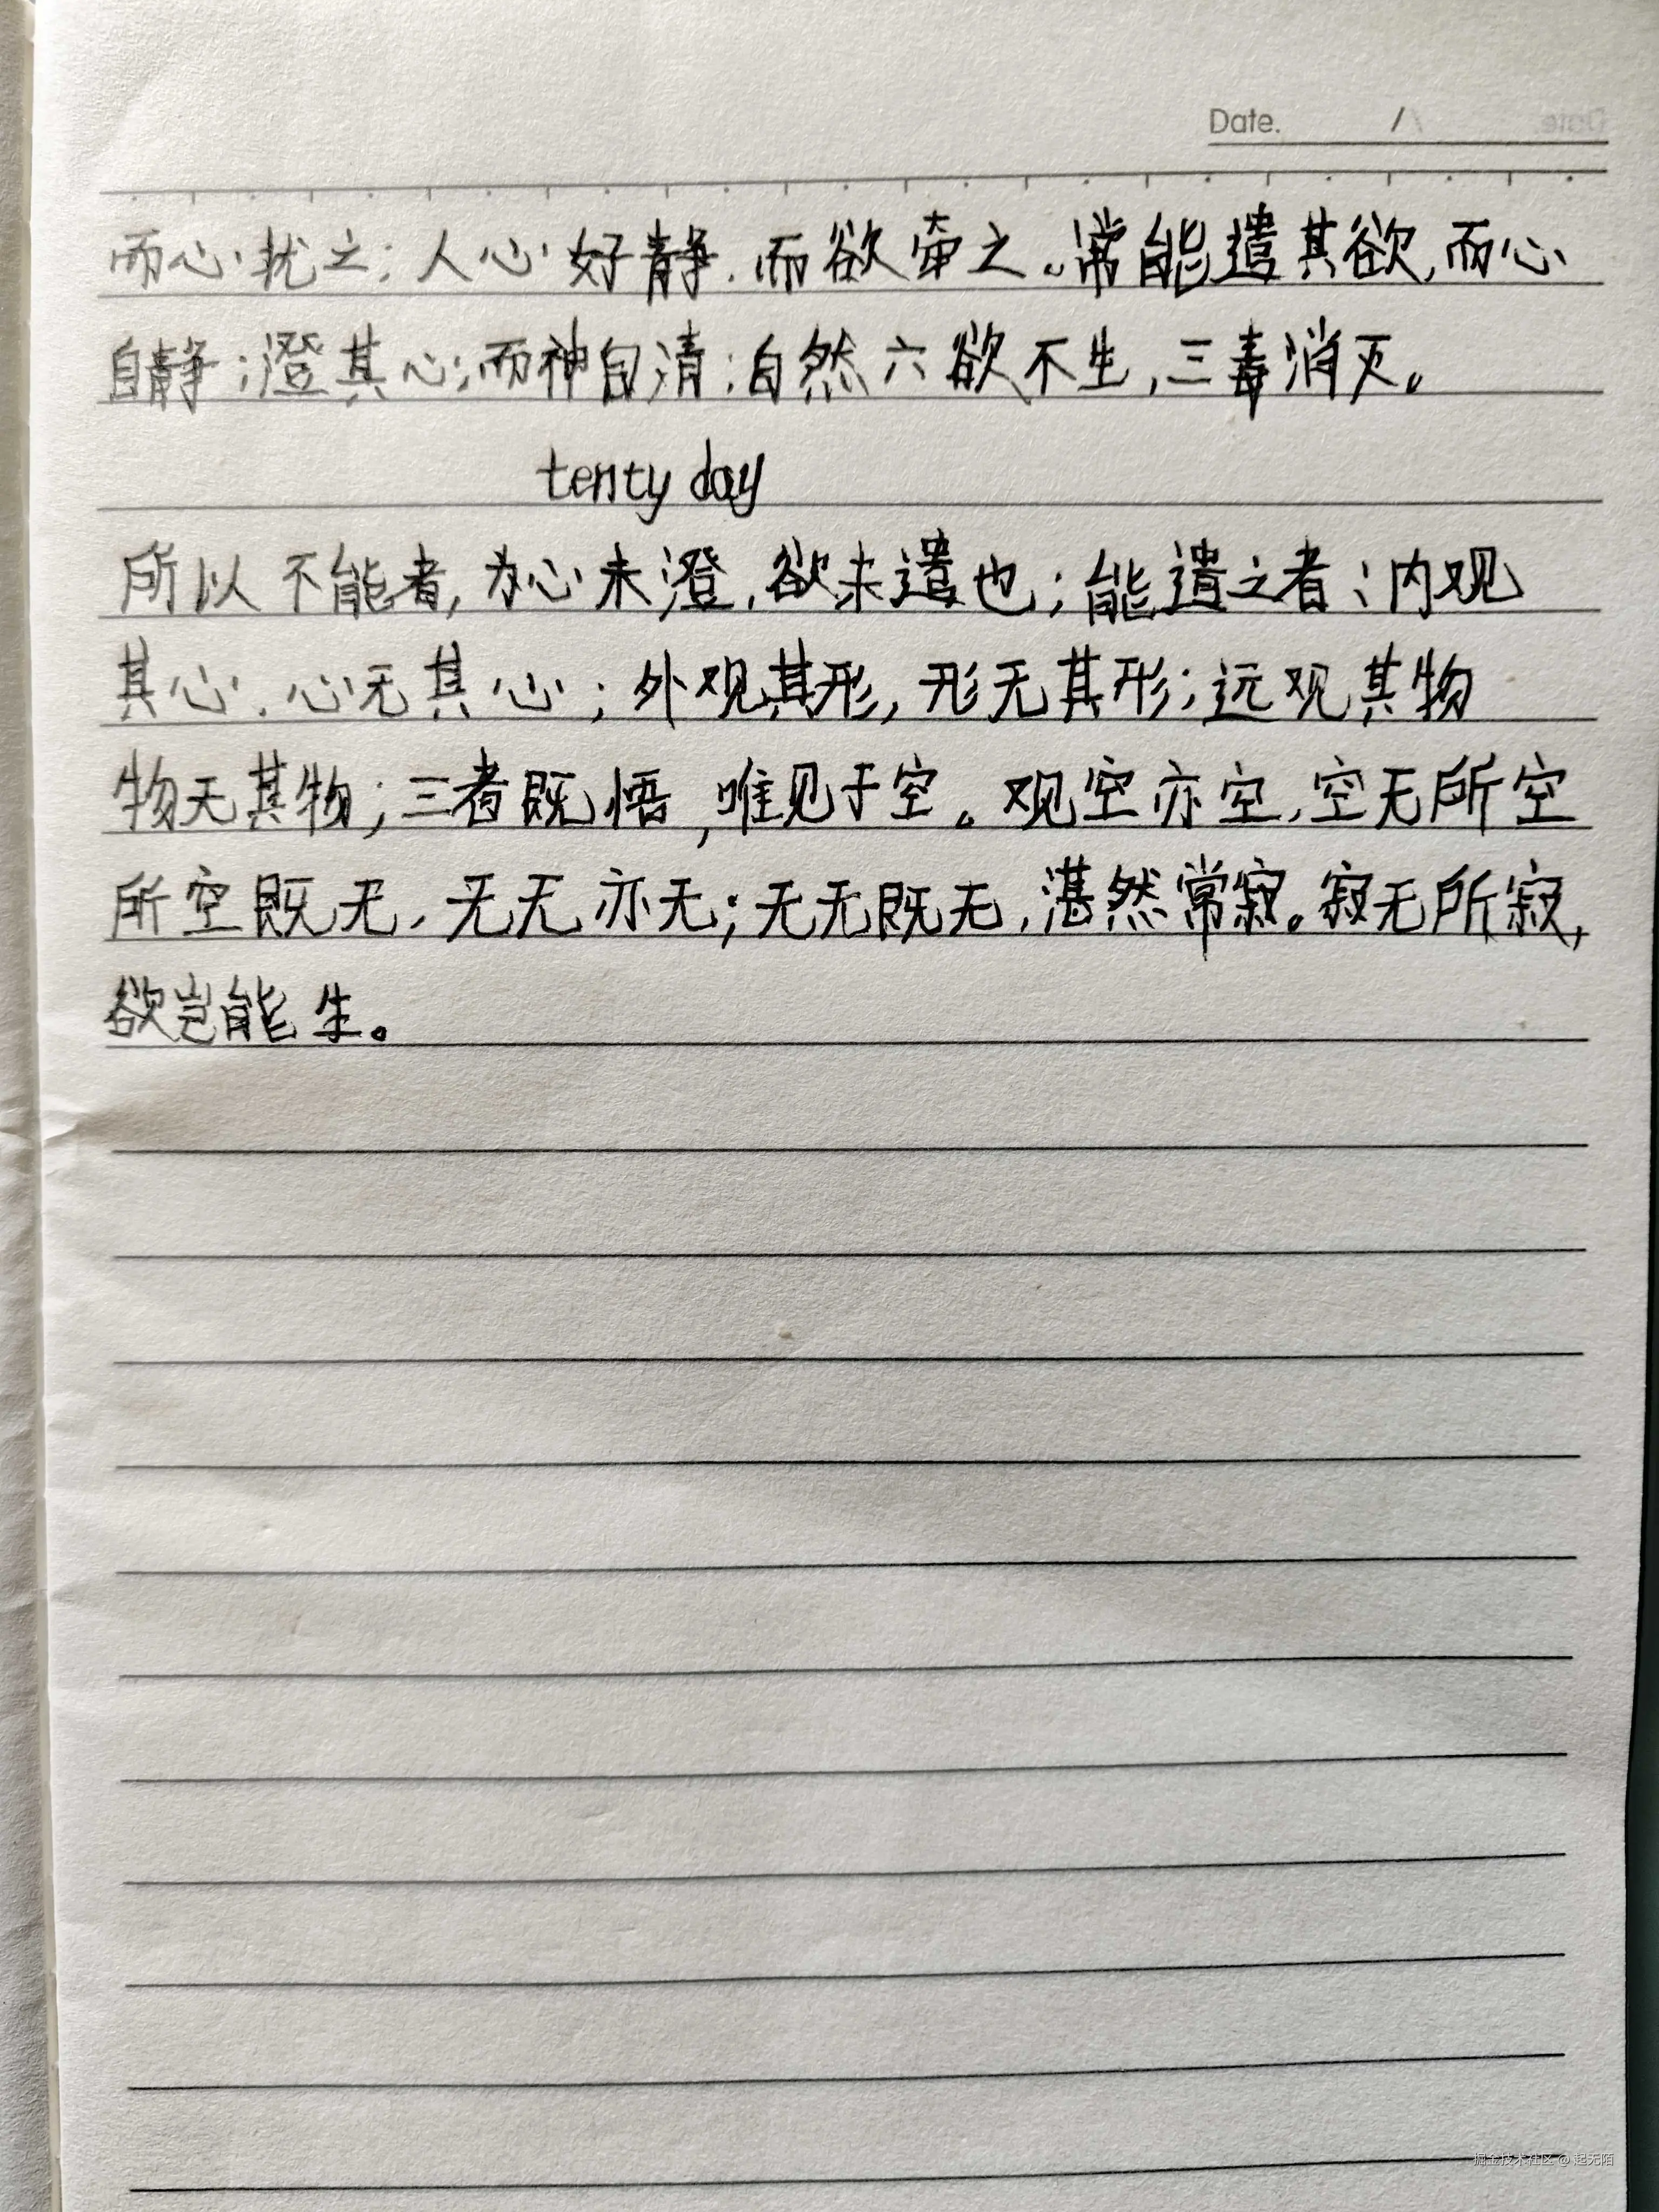 Date. /
而心扰之;人心好静,而欲牵之。常能遣其欲,而心
自静;澄其心,而神自清;自然六欲不生,三毒消灭。
tenty day
所以不能者,为心未澄,欲未遣也;能遣之者、内观
其心,心无其心;外观其形,形无其形;远观其物
物无其物;三者既悟,唯见于空。观空亦空,空无所空
所空既无,无无亦无;无无既无,湛然常寂。寂无所寂,
欲岂能生。
掘金技术社区 @ 起无陌